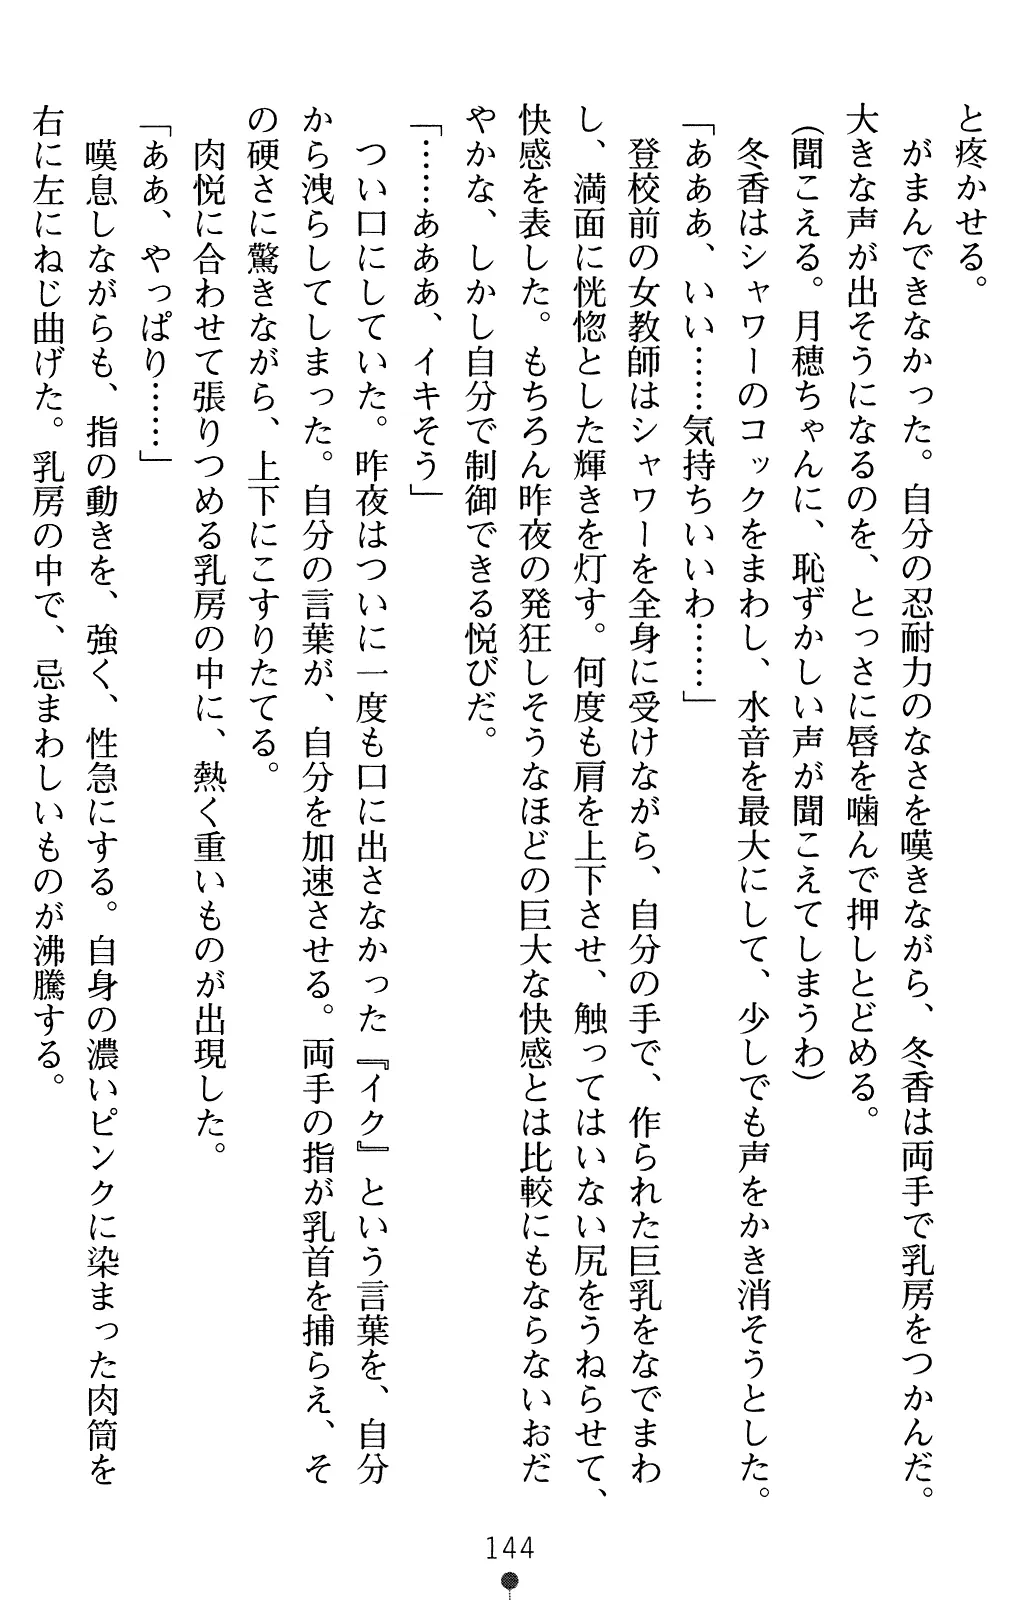 と疼かせる。
　がまんできなかった。自分の忍耐力のなさを嘆きながら、冬香は両手で乳房をつかんだ。
大きな声が出そうになるのを、とっさに唇を噛んで押しとどめる。
（聞こえる。月穂ちゃんに、恥ずかしい声が聞こえてしまうわ）
　冬香はシャワーのコックをまわし、水音を最大にして、少しでも声をかき消そうとした。
「あああ、いい……気持ちいいわ……」
　登校前の女教師はシャワーを全身に受けながら、自分の手で、作られた巨乳をなでまわ
し、満面に恍惚とした輝きを灯す。何度も肩を上下させ、触ってはいない尻をうねらせて、
快感を表した。もちろん昨夜の発狂しそうなほどの巨大な快感とは比較にもならないおだ
やかな、しかし自分で制御できる悦びだ。
「……あああ、イキそう」
　つい口にしていた。昨夜はついに一度も口に出さなかった『イク』という言葉を、自分
から洩らしてしまった。自分の言葉が、自分を加速させる。両手の指が乳首を捕らえ、そ
の硬さに驚きながら、上下にこすりたてる。
　肉悦に合わせて張りつめる乳房の中に、熱く重いものが出現した。
「ああ、やっぱり……」
　嘆息しながらも、指の動きを、強く、性急にする。自身の濃いピンクに染まった肉筒を
右に左にねじ曲げた。乳房の中で、忌まわしいものが沸騰する。
144